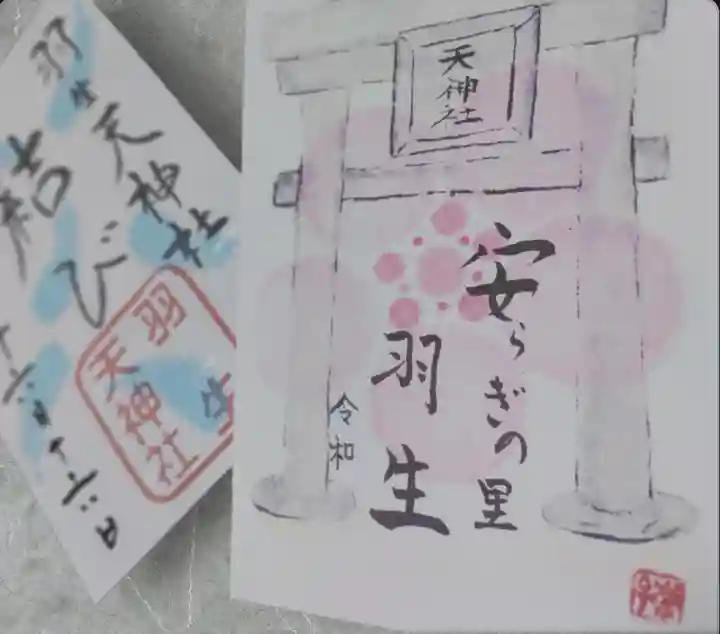 天神社
安らぎの里
羽生
令和
羽生天神社
結び
羽生
天神社